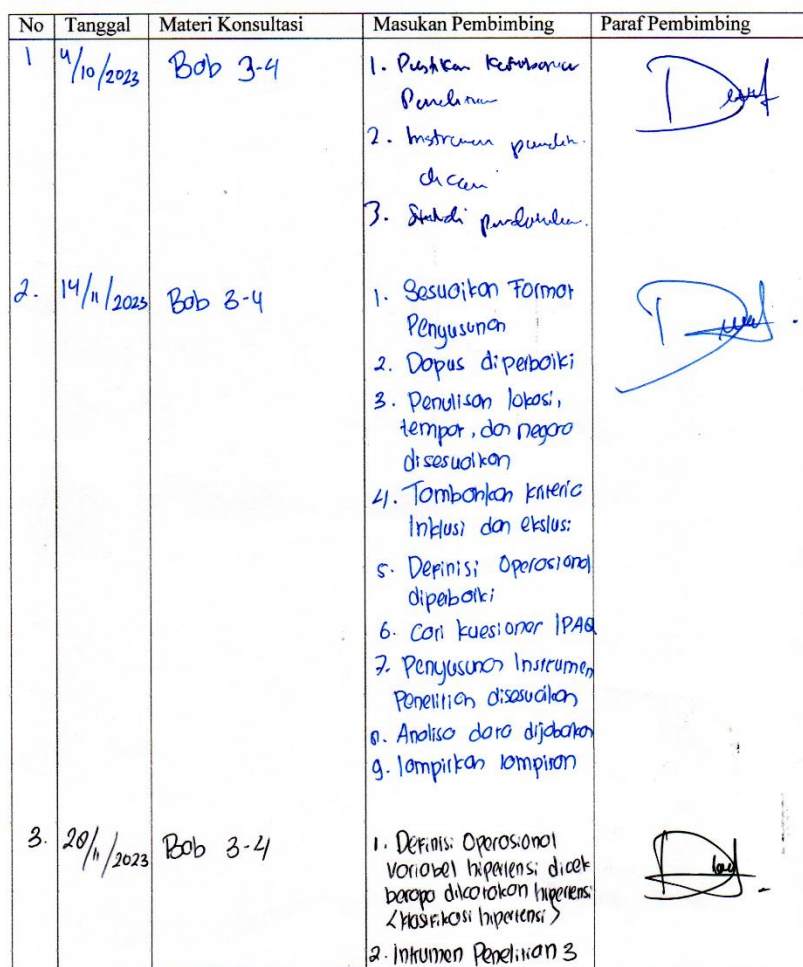 No Tanggal Materi Konsultasi Masukan Pembimbing Paraf Pembimbing
1 4/10/2023 Bab 3-4 1. Pastikan
2. Instrumen
dicari
3. Studi
2. 14/11/2023 Bab 3-4 1. Sesuaikan Format
Penyusunan
2. Dapus diperbaiki
3. Penulisan lokasi,
tempat, dan negara
disesuaikan
4. Tambahkan kriteria
Inklusi dan ekslusi
5. Definisi Operasional
diperbaiki
6. Cari kuesioner IPAQ
7. Penyusunan Instrumen
Penelitian disesuaikan
8. Analisa data dijabarkan
9. lampirkan lampiran
3. 20/11/2023 Bab 3-4 1. Definisi Operasional
Variabel hipertensi dicek
berapa dikatakan hipertensi
<klasifikasi hipertensi>
2. Intrumen Penelitian 3